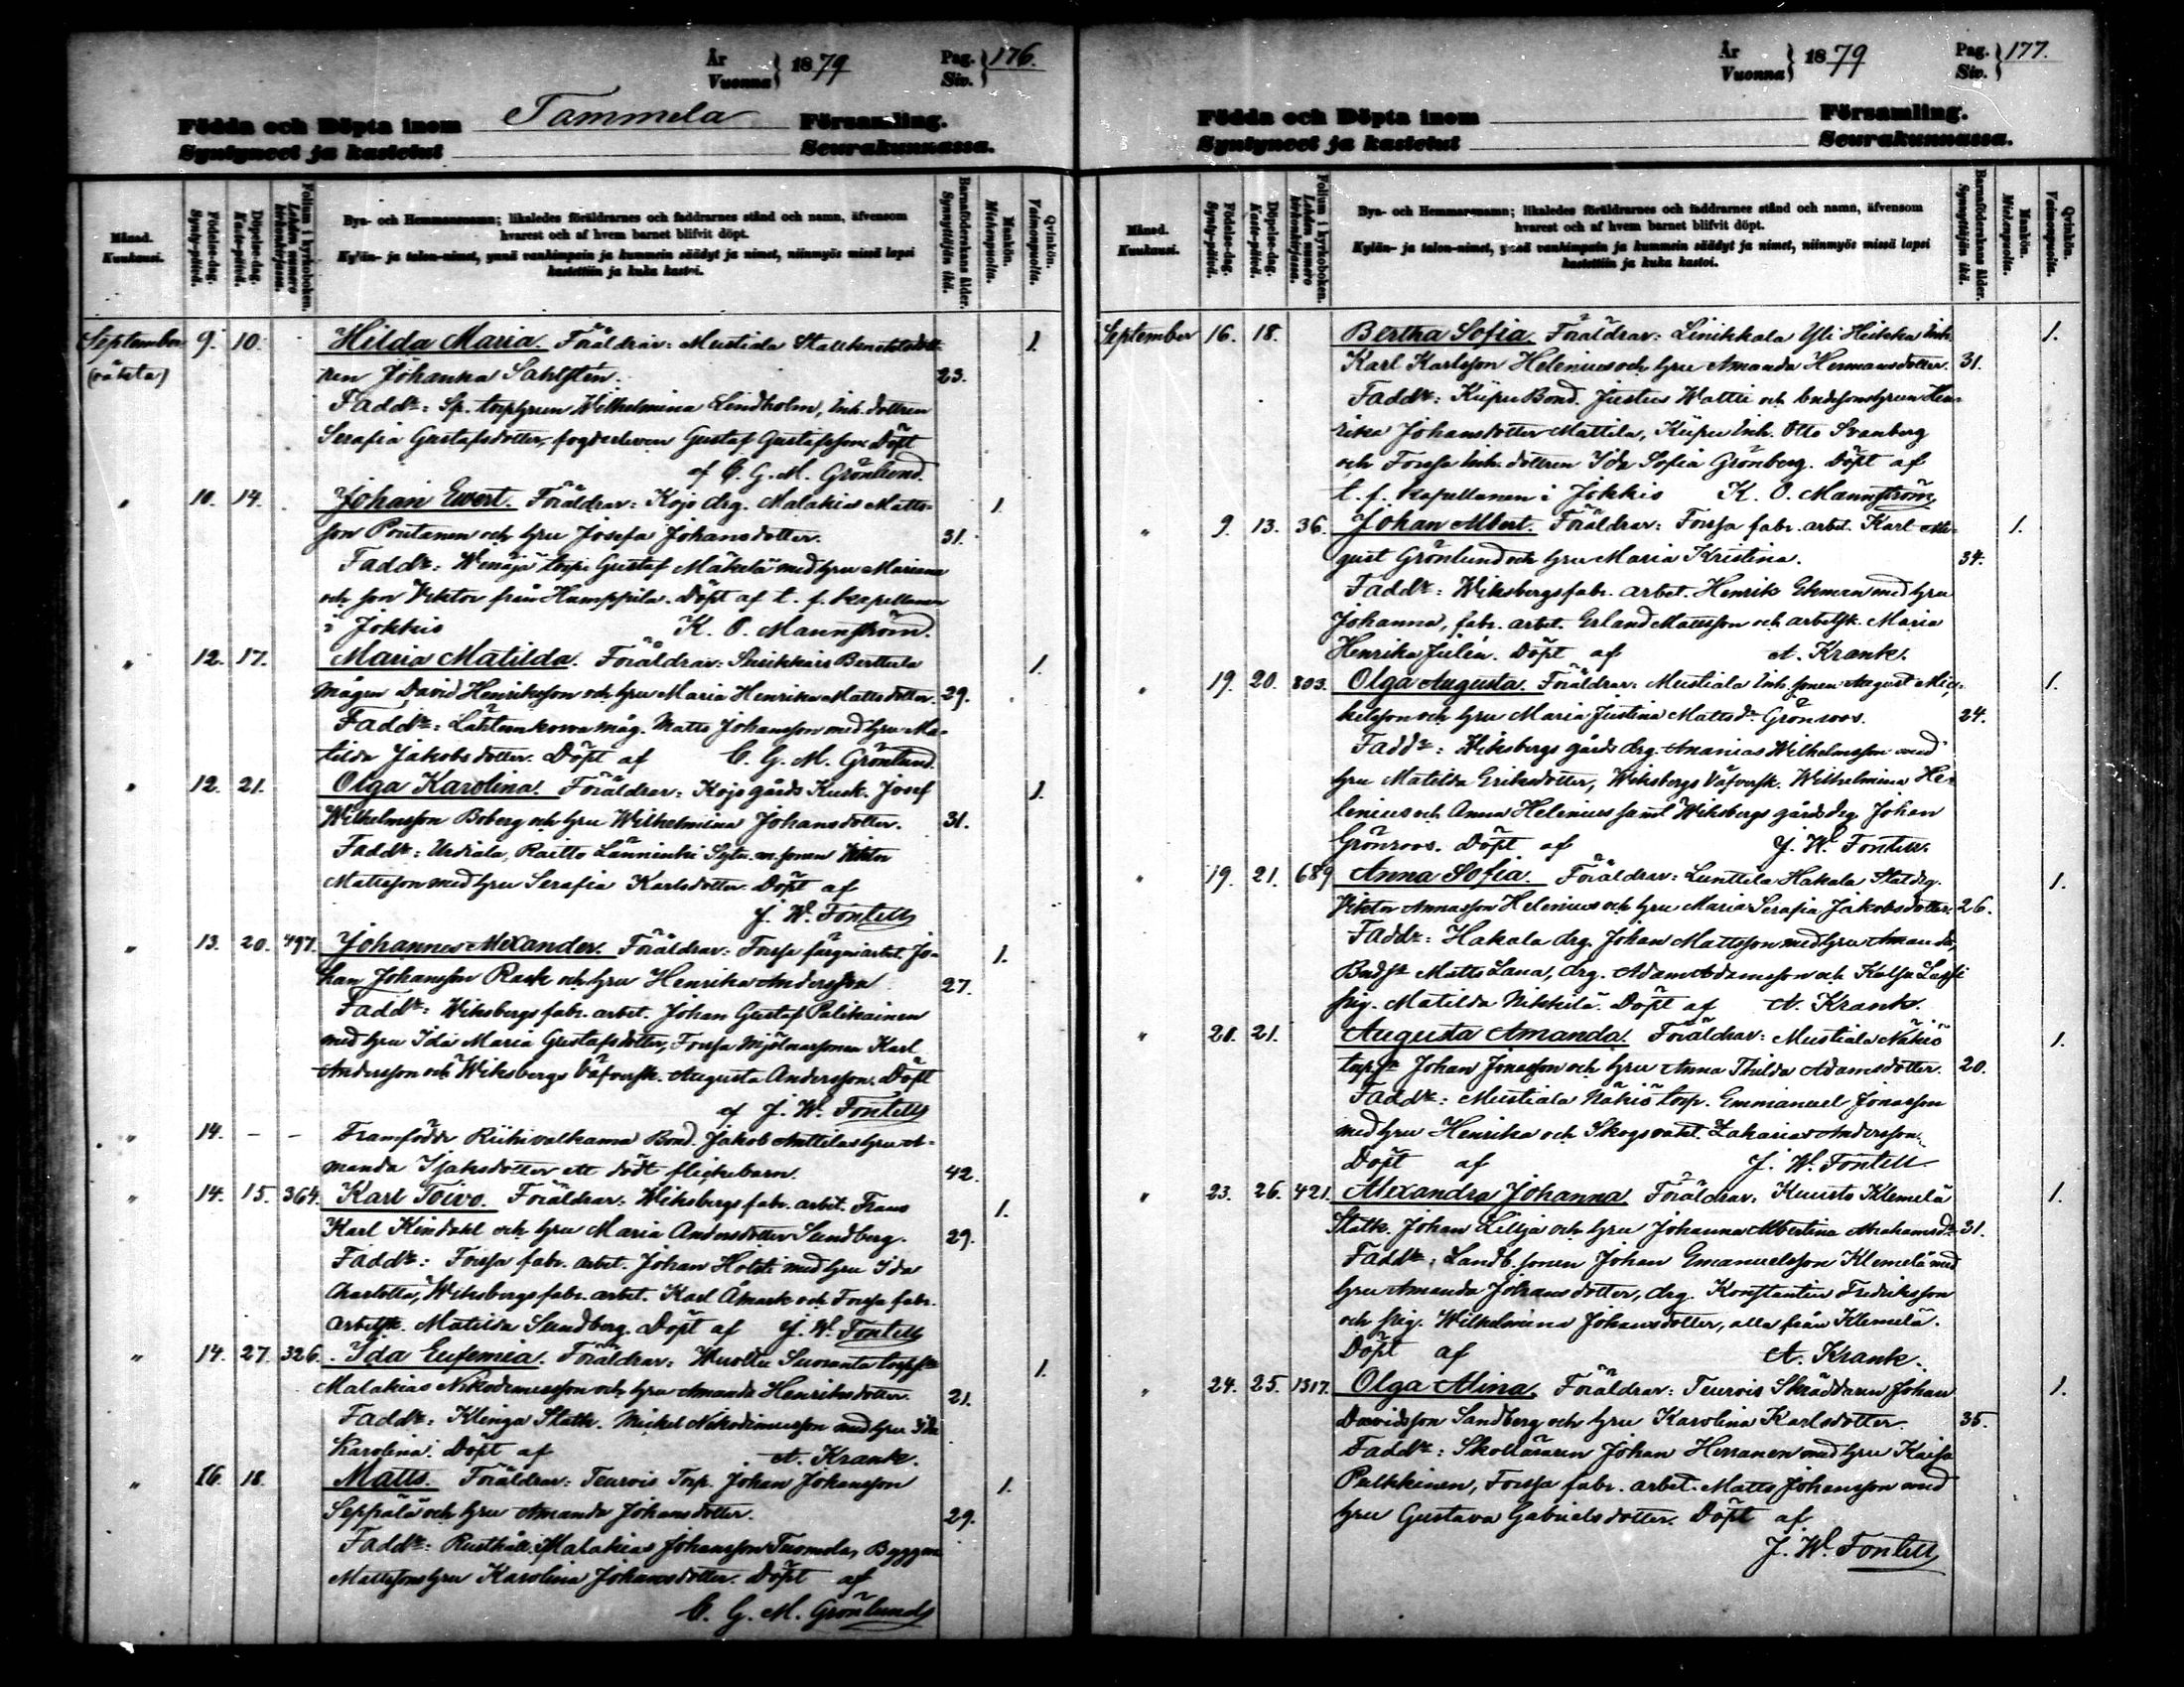 År
Vuonna
1879
Pag.
Siv.
176.
Födda och Döpta inom Tammela Församling.
Syntyneet ja kastetut Seurakunnassa.
Månad.
Kuukausi.
Födelse-dag.
Synty-päivä.
Döpelse-dag.
Kaste-päivä.
Folium i kyrkoboken.
Lehden numero kirkonkirjassa.
Bya- och Hemmansnamn; likaledes föräldrarnes och faddrarnes stånd och namn, äfvensom
hvarest och af hvem barnet blifvit döpt.
Kylän- ja talon-nimet, ynnä vanhimpain ja kummein säädyt ja nimet, niinmyös missä lapsi
kastettiin ja kuka kastoi.
Barnaföderskans ålder.
Synnyttäjän ikä.
Mankön.
Miehenpuolta.
Qvinkön.
Vaimonpuolta.
September 9. 10. Hilda Maria. Föräldrar: Mustiala 1.
(oäkta) Johanna Sahlsten. 23.
Faddr: Sp. torphrun Wilhelmina Lindholm, Inh. dottren
Serafia Gustafsdotter, Gustaf Gustafsson. Döpt
af C. G. M. Grönlund.
" 10. 14. Johan Ewert. Föräldrar: Kojo drg. Malakias Matts- 1.
son Pontanen och hru Josefa Johansdotter. 31.
Faddr: torp. Gustaf Mäkelä med hru Mariana
och son Viktor från Humppila. Döpt af t. f. kapellanen
i Jokkis K. O. Mannström.
" 12. 17. Maria Matilda. Föräldrar: Berttula 1.
mågen David Henriksson och hru Maria Henrika Mattsdotter. 29.
Faddr: måg. Matts Johansson med hru Ma-
tilda Jakobsdotter. Döpt af C. G. M. Grönlund.
" 12. 21. Olga Karolina. Föräldrar: Kojo gårds Kusk. Josef 1.
Wilhelmsson Boberg och hru Wilhelmina Johansdotter. 31.
Faddr: Urdiala, Raitto sonen Viktor
Mattsson med hru Serafia Karlsdotter. Döpt af
J. W. Fontell
" 13. 20. 497. Johannes Alexander. Föräldrar: Forssa färgeriarbet. Jo- 1.
han Johansson Rask och hru Henrika Andersson 27.
Faddr: Wiksbergs fabr. arbet. Johan Gustaf Palikainen
med hru Ida Maria Gustafsdotter, Forssa mjölnarsonen Karl
Andersson och Wiksbergs Väfversk. Augusta Andersson. Döpt
af J. W. Fontell
" 14. – – Framfödde Riihivalkama Bond. Jakob Anttilas hru A-
manda Isaksdotter ett dödt flickebarn. 42.
" 14. 15. 364. Karl Toivo. Föräldrar: Wiksbergs fabr. arbet. Frans 1.
Karl Kindahl och hru Maria Andersdotter Sundberg. 29.
Faddr: Forssa fabr. arbet. Johan Holsti med hru Ida
Charlotta, Wiksbergs fabr. arbet. Karl Åmark och Forssa fabr.
arbetsk. Matilda Sundberg. Döpt af J. W. Fontell
" 14. 27. 326. Ida Eufemia. Föräldrar: Suoranta 1.
Malakias Nikodemusson och hru Amanda Henriksdotter. 21.
Faddr: Statk. Mickel Nikodemusson med hru Ida
Karolina. Döpt af A. Krank.
" 16. 18. Matts. Föräldrar: Teurois Torp. Johan Johansson 1.
Seppälä och hru Amanda Johansdotter. 29.
Faddr: Rusthåll. Malakias Johansson Tuomola,
Mattssons hru Karolina Johansdotter. Döpt af
C. G. M. Grönlund
År
Vuonna
1879
Pag.
Siv.
177.
Födda och Döpta inom Församling.
Syntyneet ja kastetut Seurakunnassa.
Månad.
Kuukausi.
Födelse-dag.
Synty-päivä.
Döpelse-dag.
Kaste-päivä.
Folium i kyrkoboken.
Lehden numero kirkonkirjassa.
Bya- och Hemmansnamn; likaledes föräldrarnes och faddrarnes stånd och namn, äfvensom
hvarest och af hvem barnet blifvit döpt.
Kylän- ja talon-nimet, ynnä vanhimpain ja kummein säädyt ja nimet, niinmyös missä lapsi
kastettiin ja kuka kastoi.
Barnaföderskans ålder.
Synnyttäjän ikä.
Mankön.
Miehenpuolta.
Qvinkön.
Vaimonpuolta.
September 16. 18. Bertha Sofia. Föräldrar: Linikkala Yli Heikka Inh. 1.
Karl Karlsson Helenius och hru Amanda Hermansdotter. 31.
Faddr: Bond. Justus Wattu och hrun Hen-
rika Johansdotter Mattila, Inh. Otto Svanberg
och Forssa Inh. dottren Ida Sofia Grönberg. Döpt af
t. f. kapellanen i Jokkis K. O. Mannström.
" 9. 13. 36. Johan Albert. Föräldrar: Forssa fabr. arbet. Karl Au- 1.
gust Grönlund och hru Maria Kristina. 34.
Faddr: Wiksbergs fabr. arbet. Henrik Ekman med hru
Johanna, fabr. arbet. Erland Mattsson och arbetsk. Maria
Henrika Julén. Döpt af A. Krank.
" 19. 20. 803. Olga Augusta. Föräldrar: Mustiala Inh. sonen August Mic- 1.
kelsson och hru Maria Justina Mattsdr Grönroos. 24.
Faddr: Wiksbergs gårds drg. Ananias Wilhelmsson med
hru Matilda Eriksdotter, Wiksbergs Väfversk. Wilhelmina He-
lenius och Anna Helenius samt Wiksbergs gårds drg. Johan
Grönroos. Döpt af J. W. Fontell.
" 19. 21. 689 Anna Sofia. Föräldrar: Lunttila Hakala Statdrg. 1.
Viktor Annasson Helenius och hru Maria Serafia Jakobsdotter. 26.
Faddr: Hakala drg. Johan Mattsson med hru Amanda,
Matts Lana, drg. Adam Adamsson och
pig. Matilda Nikkilä. Döpt af A. Krank.
" 20. 21. Augusta Amanda. Föräldrar: Mustiala Nähiö 1.
Johan Jonasson och hru Anna Thilda Adamsdotter. 20.
Faddr: Mustiala Nähiö torp. Emmanuel Jonasson
med hru Henrika och Skogsvakt. Zakarias Andersson.
Döpt af J. W. Fontell
" 23. 26. 421. Alexandra Johanna. Föräldrar: Kuusto Klemelä 1.
Statk. Johan Lillja och hru Johanna Albertina Abrahamsdr 31.
Faddr: Landb. sonen Johan Emanuelsson Klemelä med
hru Amanda Johansdotter, drg. Konstantin Fredriksson
och pig. Wilhelmina Johansdotter, alla från Klemelä.
Döpt af A. Krank.
" 24. 25. 1317. Olga Alina. Föräldrar: Teurois Skräddaren Johan 1.
Davidsson Sandberg och hru Karolina Karlsdotter. 35.
Faddr: Skolläraren Johan Herranen med hru Kaisa
Pulkkinen, Forssa fabr. arbet. Matts Johansson med
hru Gustava Gabrielsdotter. Döpt af
J. W. Fontell